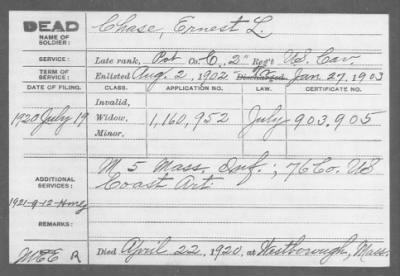 DEAD
NAME OF SOLDIER: Chase, Ernest L.
SERVICE: Late rank, Pvt Co. C, 2" Reg't U.S. Cav.
TERM OF SERVICE: Enlisted Aug. 2, 1902 Discharged Jan. 27, 1903
DATE OF FILING. CLASS. APPLICATION NO. LAW. CERTIFICATE NO.
Invalid,
1920 July 19 Widow, 1,160,952 July 903,905
Minor,
ADDITIONAL SERVICES: M 5 Mass. Inf.; 76 Co. US
Coast Art.
1921-9-12
REMARKS:
Died April 22, 1920, at Westborough, Mass.